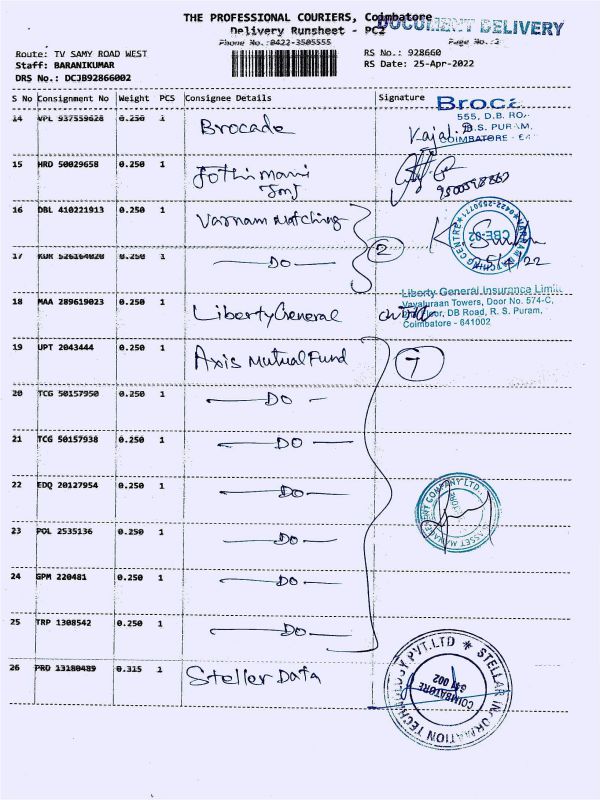 THE PROFESSIONAL COURIERS, Coimbatore
DOCUMENT DELIVERY
Delivery Runsheet - PC2
Phone No.:0422-3505555
Page No.:2
Route: TV SAMY ROAD WEST
RS No.: 928660
Staff: BARANIKUMAR
RS Date: 25-Apr-2022
DRS No.: DCJB92866002
S No Consignment No Weight PCS Consignee Details Signature
14 VPL 937559628 0.250 1 Brocade
Broca
555, D.B. RO
COIMBATORE
15 HRD 50029658 0.250 1 Jothi mani
16 DBL 410221913 0.250 1 Varnam Matching
VARNAM MATCHING CENTRE * 0422-2550771 *
CBE-02
17 KUR 526164020 0.250 1 DO
2
18 MAA 289619023 0.250 1 Liberty General
Liberty General Insurance Limit
Vayaluraan Towers, Door No. 574-C,
Floor, DB Road, R. S. Puram,
Coimbatore - 641002
19 UPT 2043444 0.250 1 Axis Mutual Fund
7
20 TCG 50157950 0.250 1 DO
21 TCG 50157938 0.250 1 DO
22 EDQ 20127954 0.250 1 DO
ASSET MANAGEMENT COMPANY LTD.
23 POL 2535136 0.250 1 DO
24 GPM 220481 0.250 1 DO
25 TRP 1308542 0.250 1 DO
26 PRO 13180489 0.315 1 Steller Data
STELLAR INFORMATION TECHNOLOGY PVT.LTD *
COIMBATORE
641 002